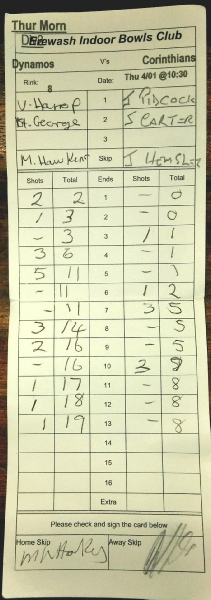 Thur Morn
Erewash Indoor Bowls Club
Dynamos V's Corinthians
Rink: 8 Date: Thu 4/01 @10:30
V. Harrop 1 J PIDCOCK
H. George 2 S CARTER
3
M. Hawkins Skip J HEMSLEY
Shots Total Ends Shots Total
2 2 1 - 0
1 3 2 - 0
- 3 3 1 1
3 6 4 - 1
5 11 5 - 1
- 11 6 1 2
- 11 7 3 5
3 14 8 - 5
2 16 9 - 5
- 16 10 3 8
1 17 11 - 8
1 18 12 - 8
1 19 13 - 8
14
15
16
Extra
Please check and sign the card below
Home Skip Away Skip